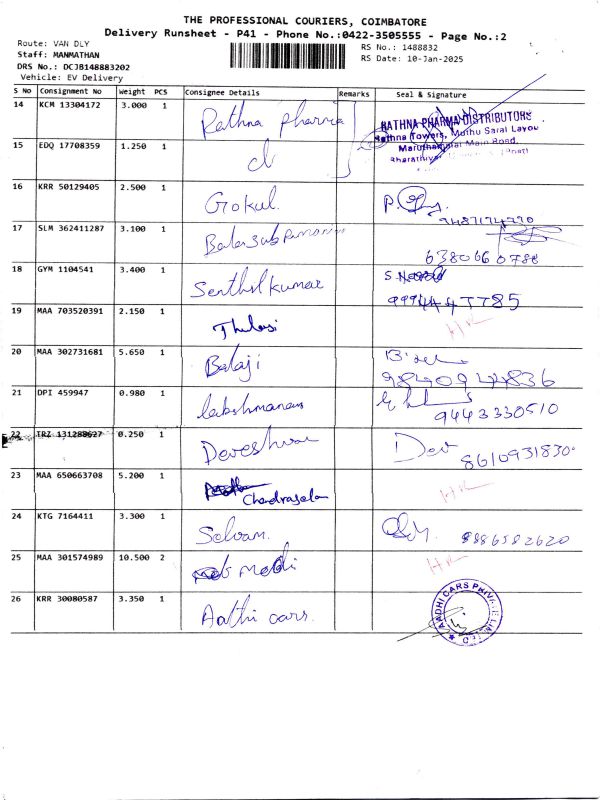 THE PROFESSIONAL COURIERS, COIMBATORE
Delivery Runsheet - P41 - Phone No.:0422-3505555 - Page No.:2
Route: VAN DLY
RS No.: 1488832
Staff: MANMATHAN
RS Date: 10-Jan-2025
DRS No.: DCJB148883202
Vehicle: EV Delivery
S No Consignment No Weight PCS Consignee Details Remarks Seal & Signature
14 KCM 13304172 3.000 1 Rathna pharma RATHNA PHARMA DISTRIBUTORS
Rathna Towers, Muthu Sarai Layou
Maruthamalai Main Road,
15 EDQ 17708359 1.250 1 cl
16 KRR 50129405 2.500 1 Gokul
9487174770
17 SLM 362411287 3.100 1 Balasubramaniam
6380660788
18 GYM 1104541 3.400 1 Senthil kumar
9994447785
19 MAA 703520391 2.150 1 Thulasi HR
20 MAA 302731681 5.650 1 Balaji
9840944836
21 DPI 459947 0.980 1 lakshmanan
9443330510
22 TRZ 131288627 0.250 1 Deveshwar Dev
8610931830
23 MAA 650663708 5.200 1 Chandrasekar HR
24 KTG 7164411 3.300 1 Selvam. 9886582620
25 MAA 301574989 10.500 2 modi HR
26 KRR 30080587 3.350 1 Aathi cars. AANDHI CARS PRIVATE LIMITED